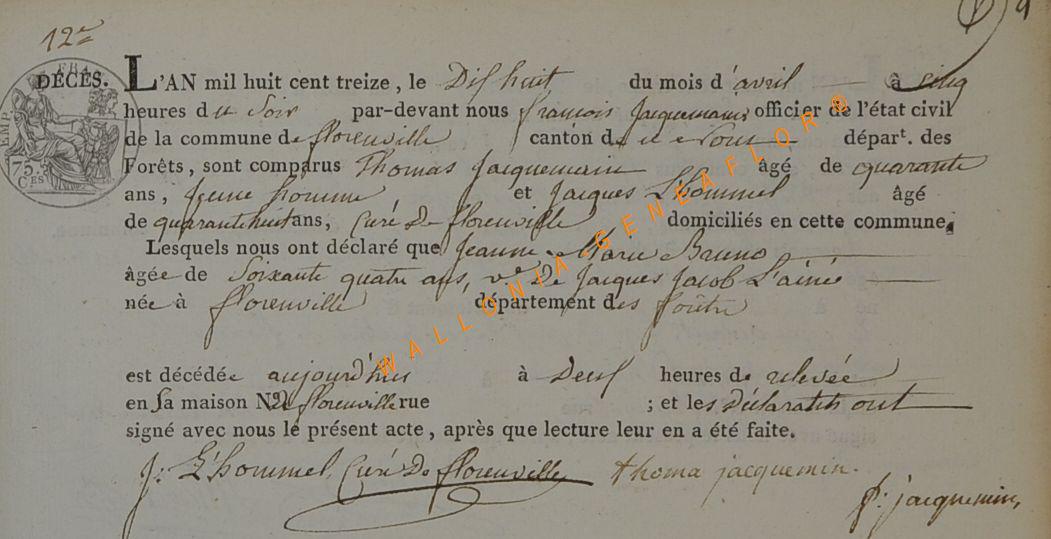 12e
DÉCÈS.
L'AN mil huit cent treize, le Dix huit du mois d'avril à cinq
heures du Soir par-devant nous françois Jacquemain officier de l'état civil
de la commune de florenville canton de départ. des
Forêts, sont comparus Thomas Jacquemain âgé de quarante
ans, jeune homme et Jacques L'hommel âgé
de quarantehuit ans, Curé de florenville domiciliés en cette commune,
Lesquels nous ont déclaré que Jeanne Marie Bruno
âgée de Soixante quatre ans, ve de Jacques Jacob L'ainé
née à florenville département des forêts
est décédée aujourd'huis à Deux heures de relevée
en Sa maison No De florenville rue ; et les Déclarants ont
signé avec nous le présent acte, après que lecture leur en a été faite.
J: L'hommel, Curé De florenville thoma jacquemin.
f: jacquemin,
WALLONIA GENEAFLOR ©